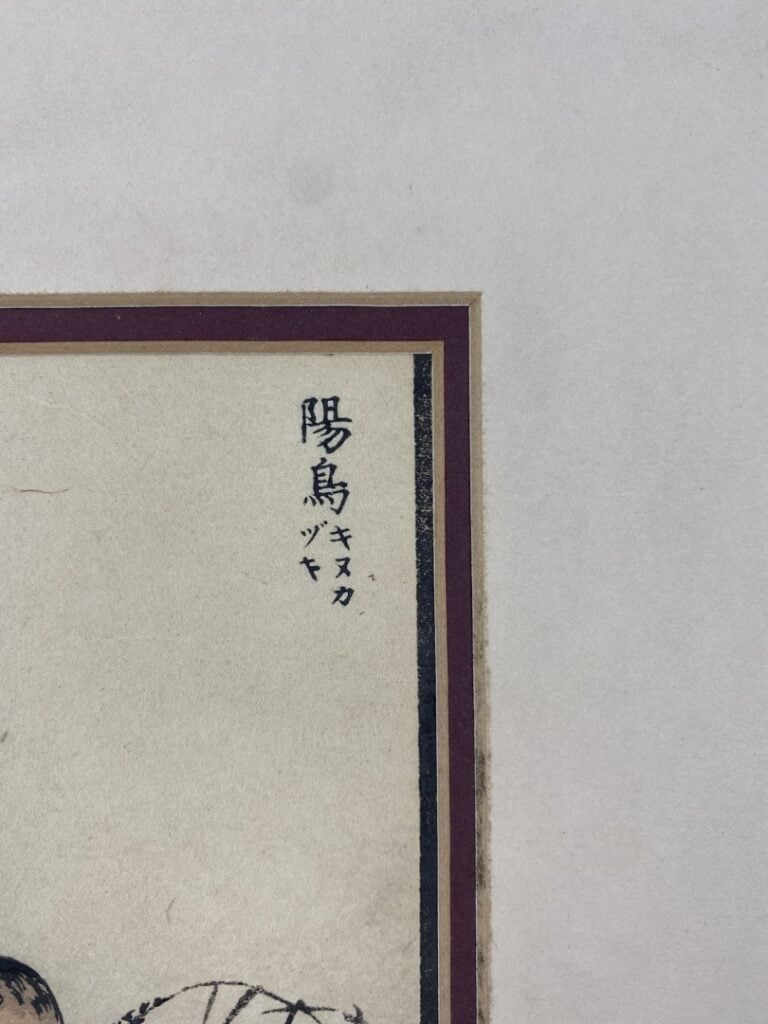 陽鳥
キヌカ
ヅキ